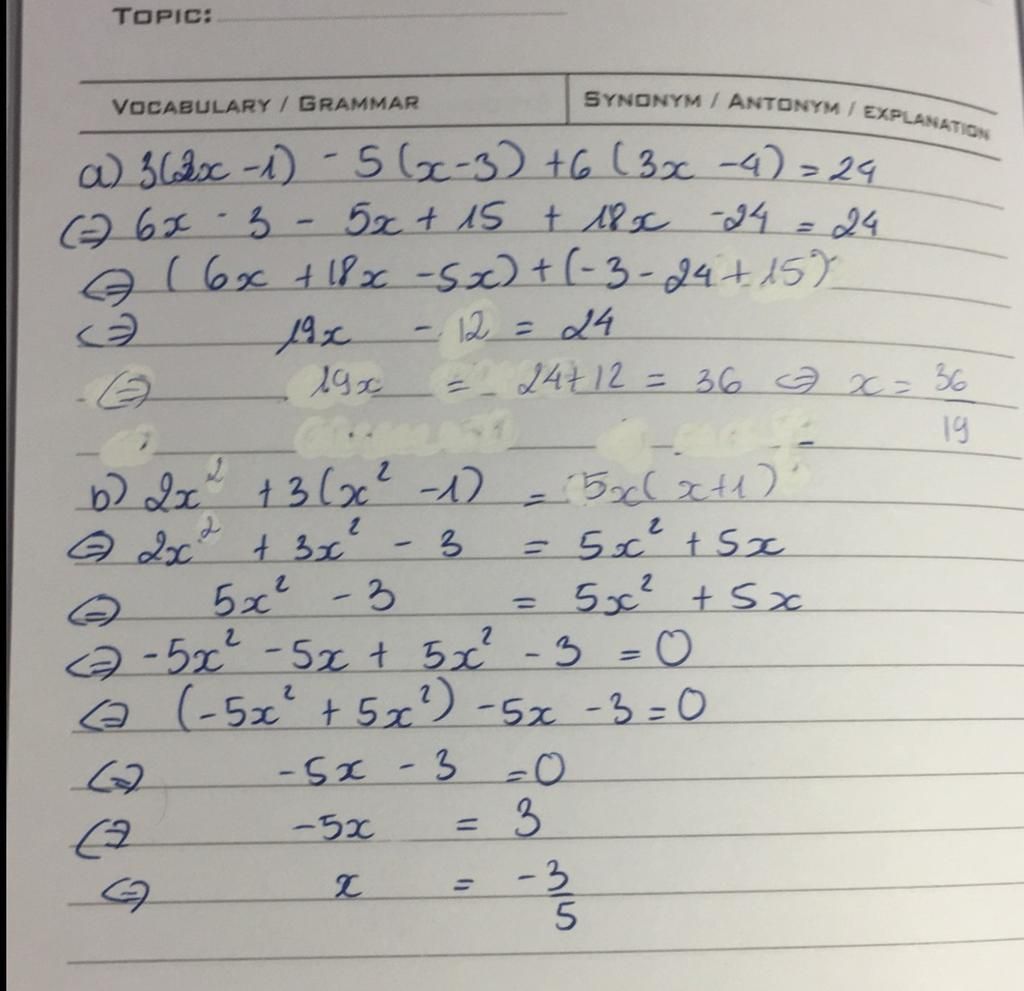 TOPIC:
VOCABULARY / GRAMMAR SYNONYM / ANTONYM / EXPLANATION
a) 3(2x -1) - 5(x-3) + 6(3x -4) = 24
(=) 6x - 3 - 5x + 15 + 18x - 24 = 24
<=> (6x + 18x - 5x) + (-3 - 24 + 15)
<=> 19x - 12 = 24
<=> 19x = 24+12 = 36 <=> x = 36/19
b) 2x² + 3(x² -1) = 5x(x+1)
<=> 2x² + 3x² - 3 = 5x² + 5x
<=> 5x² - 3 = 5x² + 5x
<=> -5x² - 5x + 5x² - 3 = 0
<=> (-5x² + 5x²) - 5x - 3 = 0
<=> -5x - 3 = 0
<=> -5x = 3
<=> x = -3/5